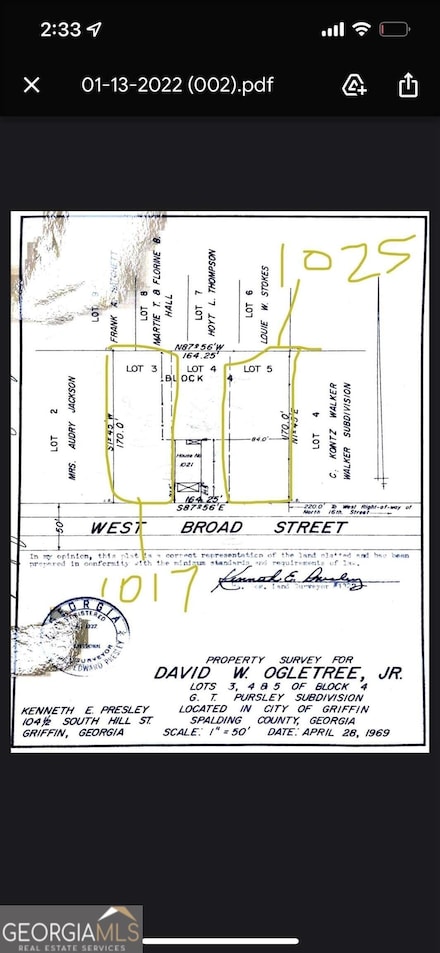 2:33
01-13-2022 (002).pdf
1025
LOT 8
MARTIE T. & FLORINE B. HALL
LOT 7
HOYT L. THOMPSON
LOT 6
LOUIE W. STOKES
N87°56'W
164.25'
LOT 3
LOT 4
LOT 5
BLOCK 4
LOT 2
MRS. AUDRY JACKSON
170.0'
84.0'
House No
1021
170.0'
N1°45'E
LOT 4
C. KONITZ WALKER
WALKER SUBDIVISION
164.25'
S87°56'E
220.0' To West Right-of-way of
North 16th. Street
50'
WEST BROAD STREET
In my opinion, this plat is a correct representation of the land platted and has been
prepared in conformity with the minimum standards and requirements of law.
Kenneth E. Presley
1017
GEORGIA
PROPERTY SURVEY FOR
DAVID W. OGLETREE, JR.
LOTS 3, 4 & 5 OF BLOCK 4
G. T. PURSLEY SUBDIVISION
KENNETH E. PRESLEY LOCATED IN CITY OF GRIFFIN
104½ SOUTH HILL ST. SPALDING COUNTY, GEORGIA
GRIFFIN, GEORGIA SCALE: 1" = 50' DATE: APRIL 28, 1969
GEORGIAMLS
REAL ESTATE SERVICES